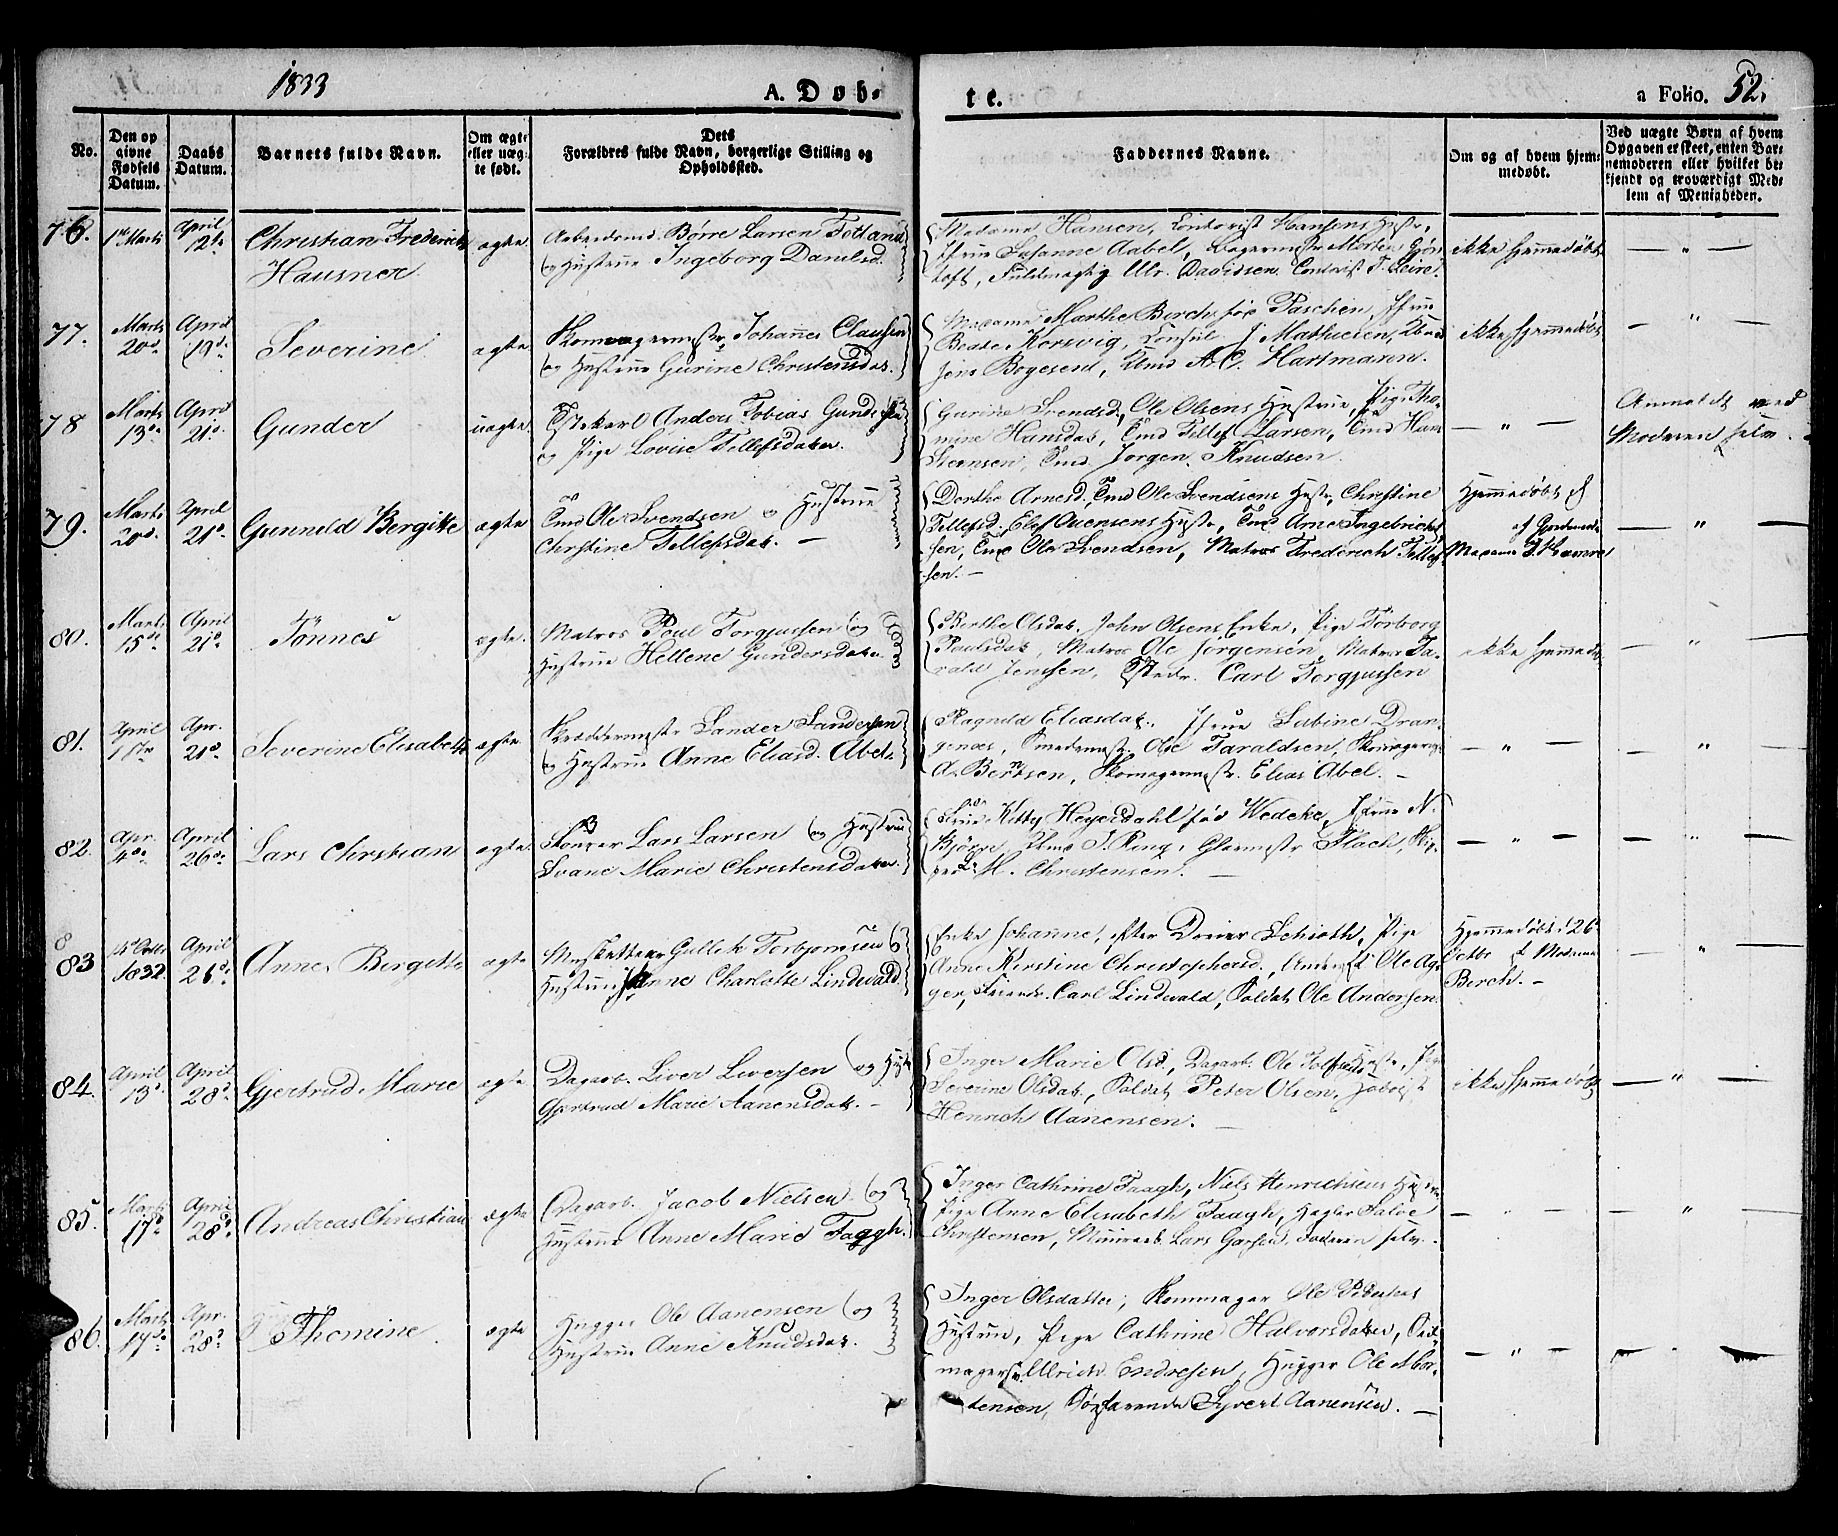 1833
A. Døb-
te.
a Folio. 52.
No.
Den op
givne
Fødsels
Datum.
Daabs
Datum.
Barnets fulde Navn.
Om ægte
eller uæg
te født.
Dets
Forældres fulde Navn, borgerlige Stilling og
Opholdssted.
Faddernes Navne.
Om og af hvem hjem=
medøbt.
Ved uægte Børn af hvem
Opgaven er skeet, enten Bar=
nemoderen eller hvilket be=
kjendt og troværdigt Med=
lem af Menigheden.
76. 1ste Marts April 12te
Christian Frederich
Hausner
ægte
Arbeidsmd. Børre Larsen Totland
og Hustrue Ingeborg Danielsd.
Madame Hansen, Hansens Hustr.
Jfrue Susanne Aabel, Bagermestr Morten
toft, Fuldmægtig Mr. Davidsen
ikke hjemmedøbt
— " —
77. Marts 20de April 19de
Severine
ægte
Skomagermestr. Johannes Claussen
og Hustrue Gurine Christensdat.
Madame Marthe Birch, fød Paschen, Jfrue
Beate Korsvig, Consul J Mathiesen,
Bogesen, A. C. Hartmann.
ikke hjemmedøbt
— " —
78 Marts 13de April 21de
Gunder
uægte
Anders Tobias Gundersen
og Pige Lovise Tellefsdatter.
Gurine Svendsd., Ole Olsens Hustrue, Pige Tho=
mine Hansdat., Tellef Larsen,
Jørgen Knudsen.
— " —
Anmeldt ved
Moderen selv.
79. Marts 20de April 21de
Gunnild Bergitte
ægte
Tmd Ole Svendsen og Hustrue
Christine Tellefsdat. —
Dorthe Arnesd. Tmd Ole Svendsens Hustr. Christine
Tellefsd. Elef Ouensens Hustr., Tmd Arne Ingebricht
sen, Tmd Ole Svendsen, Matros Frederich Tellef
sen. —
Hjemmedøbt
af Jordemod.
Madame
— " —
80. Marts 15de April 21de
Tönnes
ægte.
Matros Poul Torgjussen og
Hustrue Hellene Gundersdatter
Berthe Olsdat. John Olsens Enke, Pige Torborg
Paulsdat, Matros Ole Jörgensen, Matros Ta=
rald Jenssen, Carl Torgjussen
ikke hjemmedøbt
— " —
81. April 1ste Apr. 21de
Severine Elisabeth
ægte
Skræddermestr Sander Sandersen
og Hustrue Anne Eliasd. Abel.
Ragnild Eliasdat., Jfrue Sabine Dran=
genæs, Smedemestr. Ole Taraldsen, Skomagersv.
A. Berntsen, Skomagermestr. Elias Abel. —
— " —
— " —
82. Apr. 4de April 26de
Lars Christian
ægte
Lars Larsen og Hustrue
Svane Marie Christensdatter.
Kitty Heyerdahl fød Wedeke, Jfrue N.
Bjørre, J. Ring, Glarmestr Flach,
M. Christensen. —
— " —
— " —
83 Octbr 1832 April 26de
Anne Bergitte
ægte
Musketteer Gullik Torbjornsen
Hustrue Anne Charlotte Lindevald.
Enke Johanne, efter Schiøth, Pige
Anne Kirstine Christophersd., Ole Ag=
ger, Carl Lindevald, Soldat Ole Andersen
Hjemmedøbt d 26
Octbr af Madame
Berch. —
— " —
84. April 13de April 28de
Gjertrud Marie
ægte
Dagarb. Liver Liversen og Hustr
Gjertrud Marie Aanensdat. —
Inger Marie Olsd., Dagarb. Ole Hustr., Pige
Severine Olsdat., Soldat Peter Olsen,
Henrich Aanensen. —
ikke hjemmedøbt
— " —
85. Marts 17de April 28de
Andreas Christian
ægte
Dagarb. Jacob Nielsen og
Hustrue Anne Marie Faggh.
Inger Cathrine Faagh, Niels Henrichsens Hustrue
Pige Anne Elisabeth Faagh, Salve
Christensen, Lars Faderen selv. —
— " —
— " —
86. Marts 17de Apr. 28de
Thomine
ægte
Hugger Ole Aanensen og
Hustrue Anne Knudsdat.
Inger Olsdatter, Skommager Ole
Hustrue, Pige Cathrine Halvorsdatter,
magersv. Ulrich Endresen, Hugger Ole Mor=
tensen, Søefarende Syvert Aanensen. —
— " —
— " —